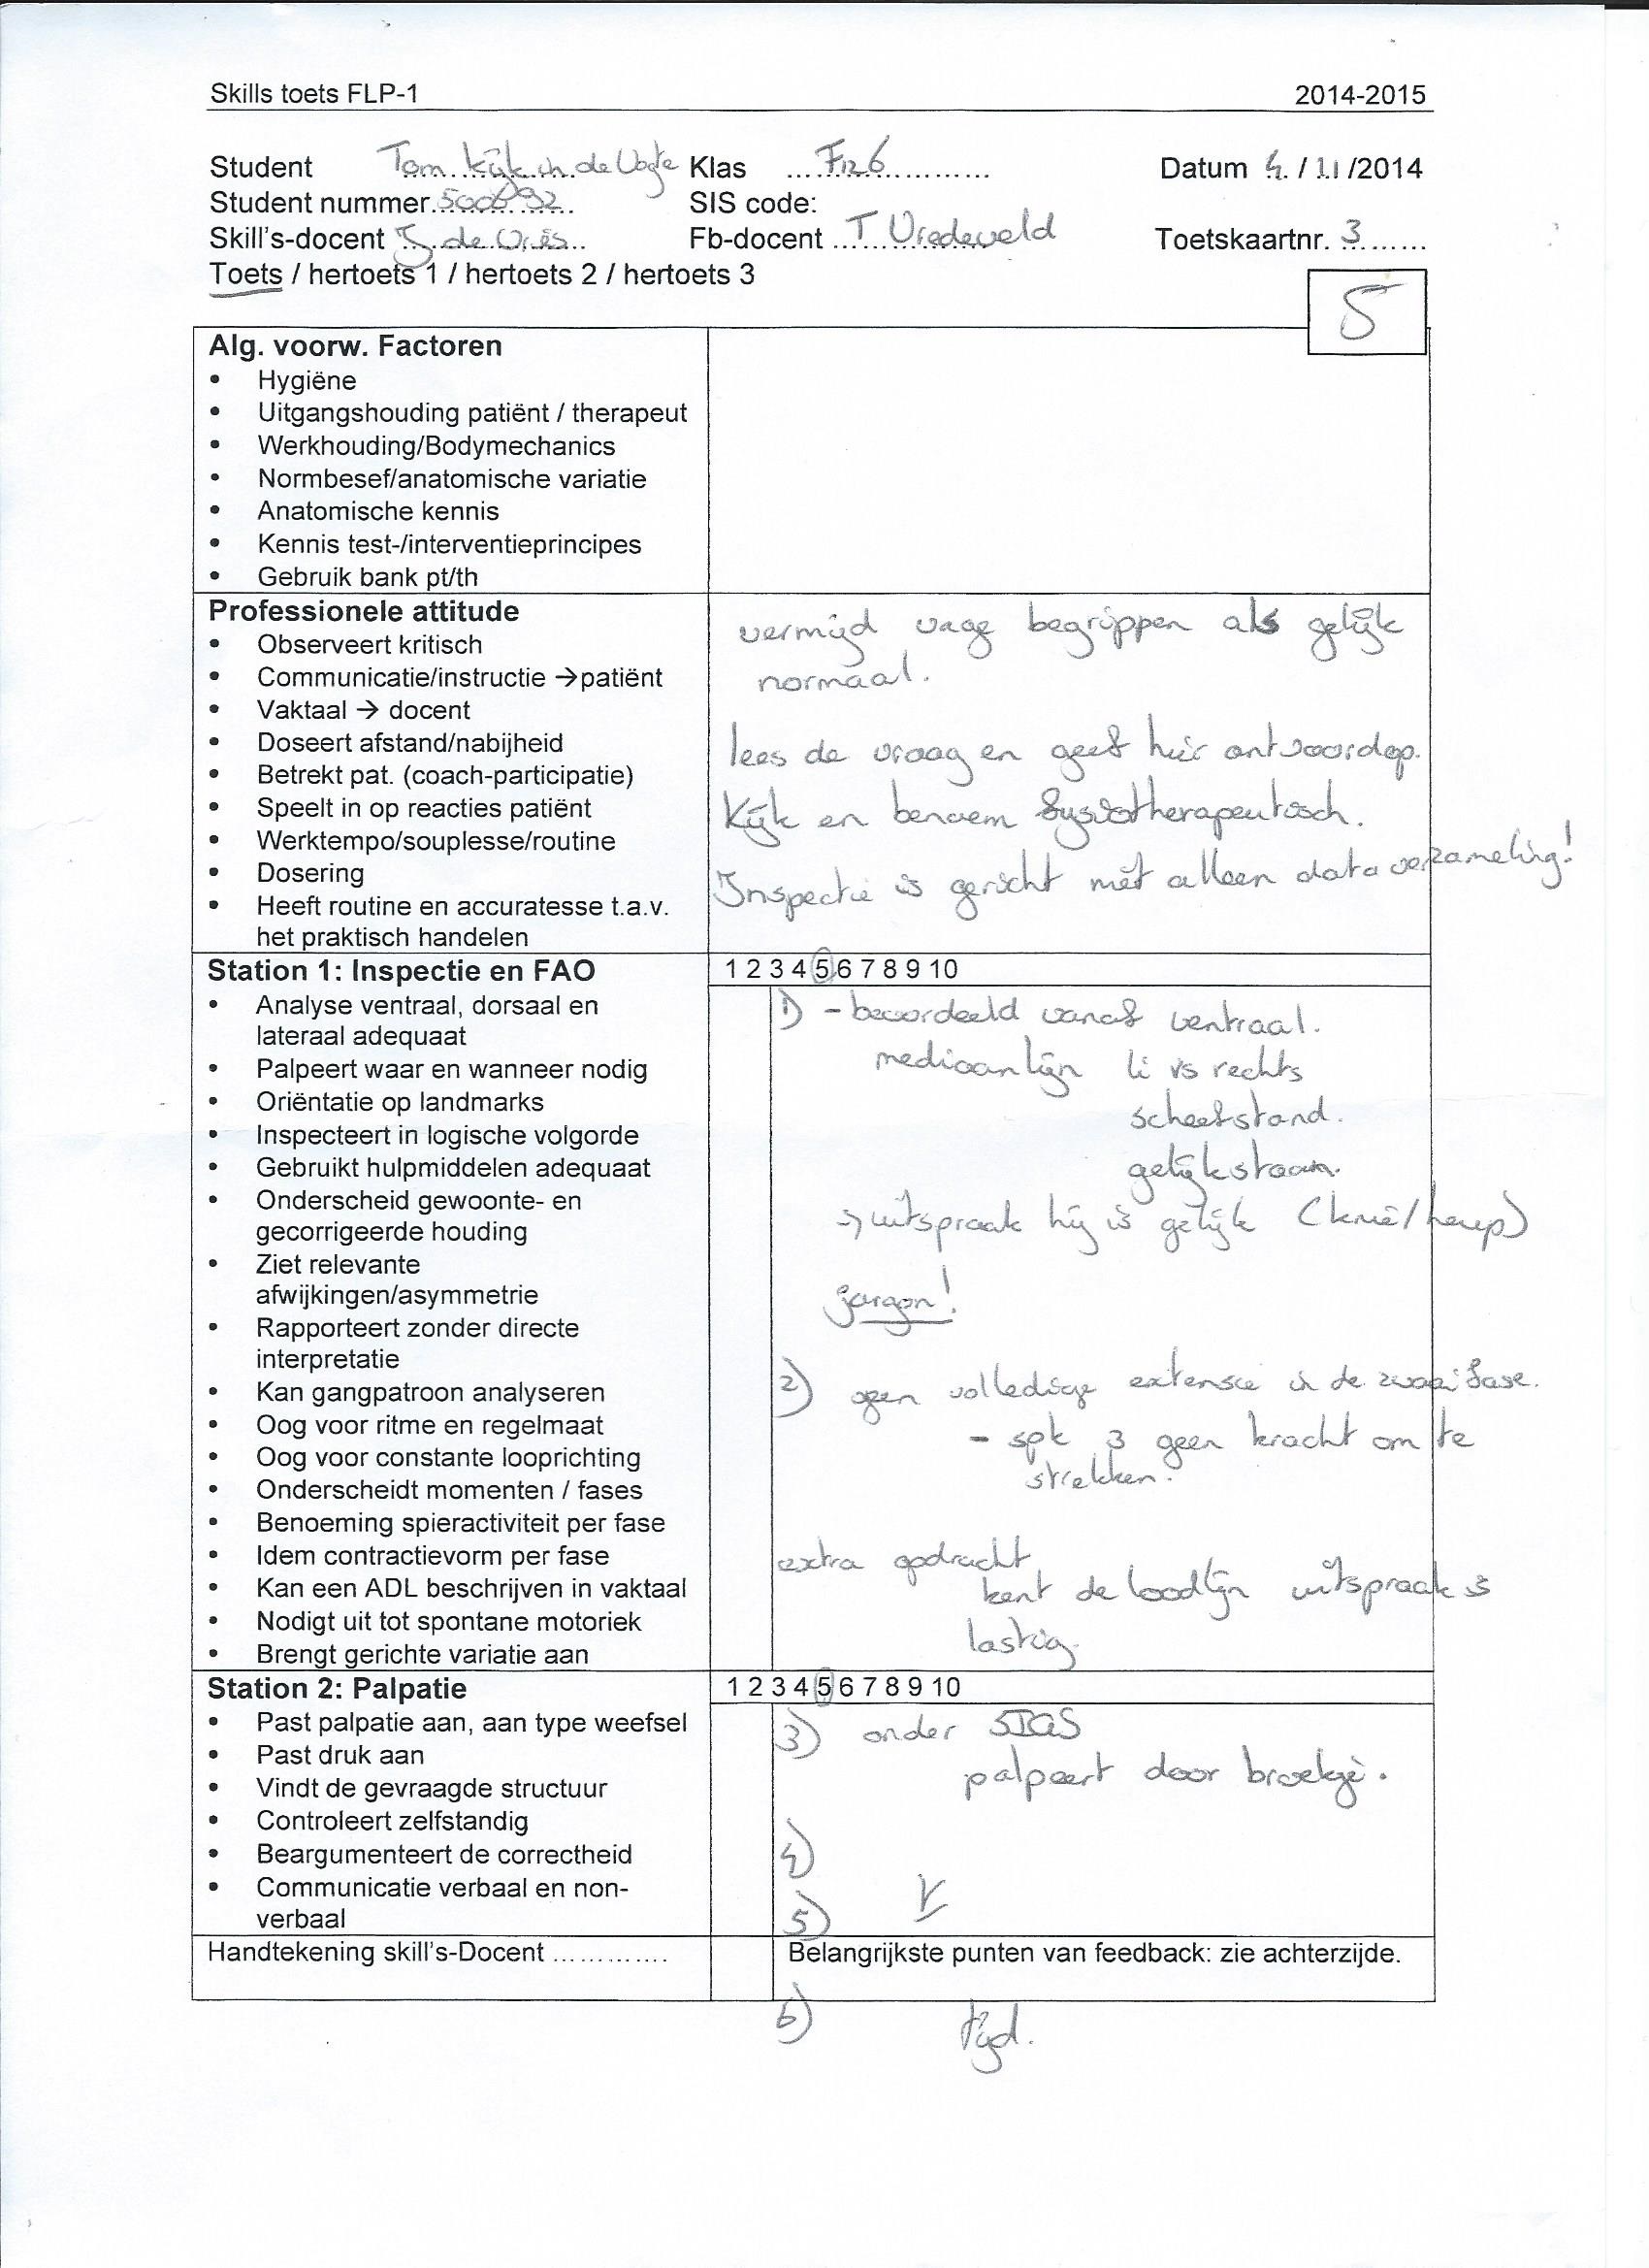 Skills toets FLP-1 2014-2015
Student Tom Kijk in de Vegte Klas F126 Datum 4 / 11 /2014
Student nummer SIS code:
Skill's-docent J de Vries Fb-docent T Vredeveld Toetskaartnr. 3
Toets / hertoets 1 / hertoets 2 / hertoets 3
5
Alg. voorw. Factoren
• Hygiëne
• Uitgangshouding patiënt / therapeut
• Werkhouding/Bodymechanics
• Normbesef/anatomische variatie
• Anatomische kennis
• Kennis test-/interventieprincipes
• Gebruik bank pt/th
Professionele attitude
• Observeert kritisch
• Communicatie/instructie →patiënt
• Vaktaal → docent
• Doseert afstand/nabijheid
• Betrekt pat. (coach-participatie)
• Speelt in op reacties patiënt
• Werktempo/souplesse/routine
• Dosering
• Heeft routine en accuratesse t.a.v.
het praktisch handelen
vermijd vage begrippen als gelijk
normaal.
lees de vraag en geef hier antwoord op.
Kijk en benoem fysiotherapeutisch.
Inspectie is gericht niet alleen data verzameling!
Station 1: Inspectie en FAO
1 2 3 4 5 6 7 8 9 10
• Analyse ventraal, dorsaal en
lateraal adequaat
• Palpeert waar en wanneer nodig
• Oriëntatie op landmarks
• Inspecteert in logische volgorde
• Gebruikt hulpmiddelen adequaat
• Onderscheid gewoonte- en
gecorrigeerde houding
• Ziet relevante
afwijkingen/asymmetrie
• Rapporteert zonder directe
interpretatie
• Kan gangpatroon analyseren
• Oog voor ritme en regelmaat
• Oog voor constante looprichting
• Onderscheidt momenten / fases
• Benoeming spieractiviteit per fase
• Idem contractievorm per fase
• Kan een ADL beschrijven in vaktaal
• Nodigt uit tot spontane motoriek
• Brengt gerichte variatie aan
1) - beoordeeld vanaf ventraal.
mediaanlijn li vs rechts
scheefstand.
gelijk staan.
→ uitspraak hij is gelijk (knie/heup)
jargon!
2) geen volledige extensie in de zwaaifase.
- spk 3 geen kracht om te
strekken.
extra opdracht
kent de loodlijn uitspraak is
lastig.
Station 2: Palpatie
1 2 3 4 5 6 7 8 9 10
• Past palpatie aan, aan type weefsel
• Past druk aan
• Vindt de gevraagde structuur
• Controleert zelfstandig
• Beargumenteert de correctheid
• Communicatie verbaal en non-
verbaal
3) onder SIAS
palpeert door broekje.
4)
5) V
Handtekening skill's-Docent ............. Belangrijkste punten van feedback: zie achterzijde.
6) tijd.